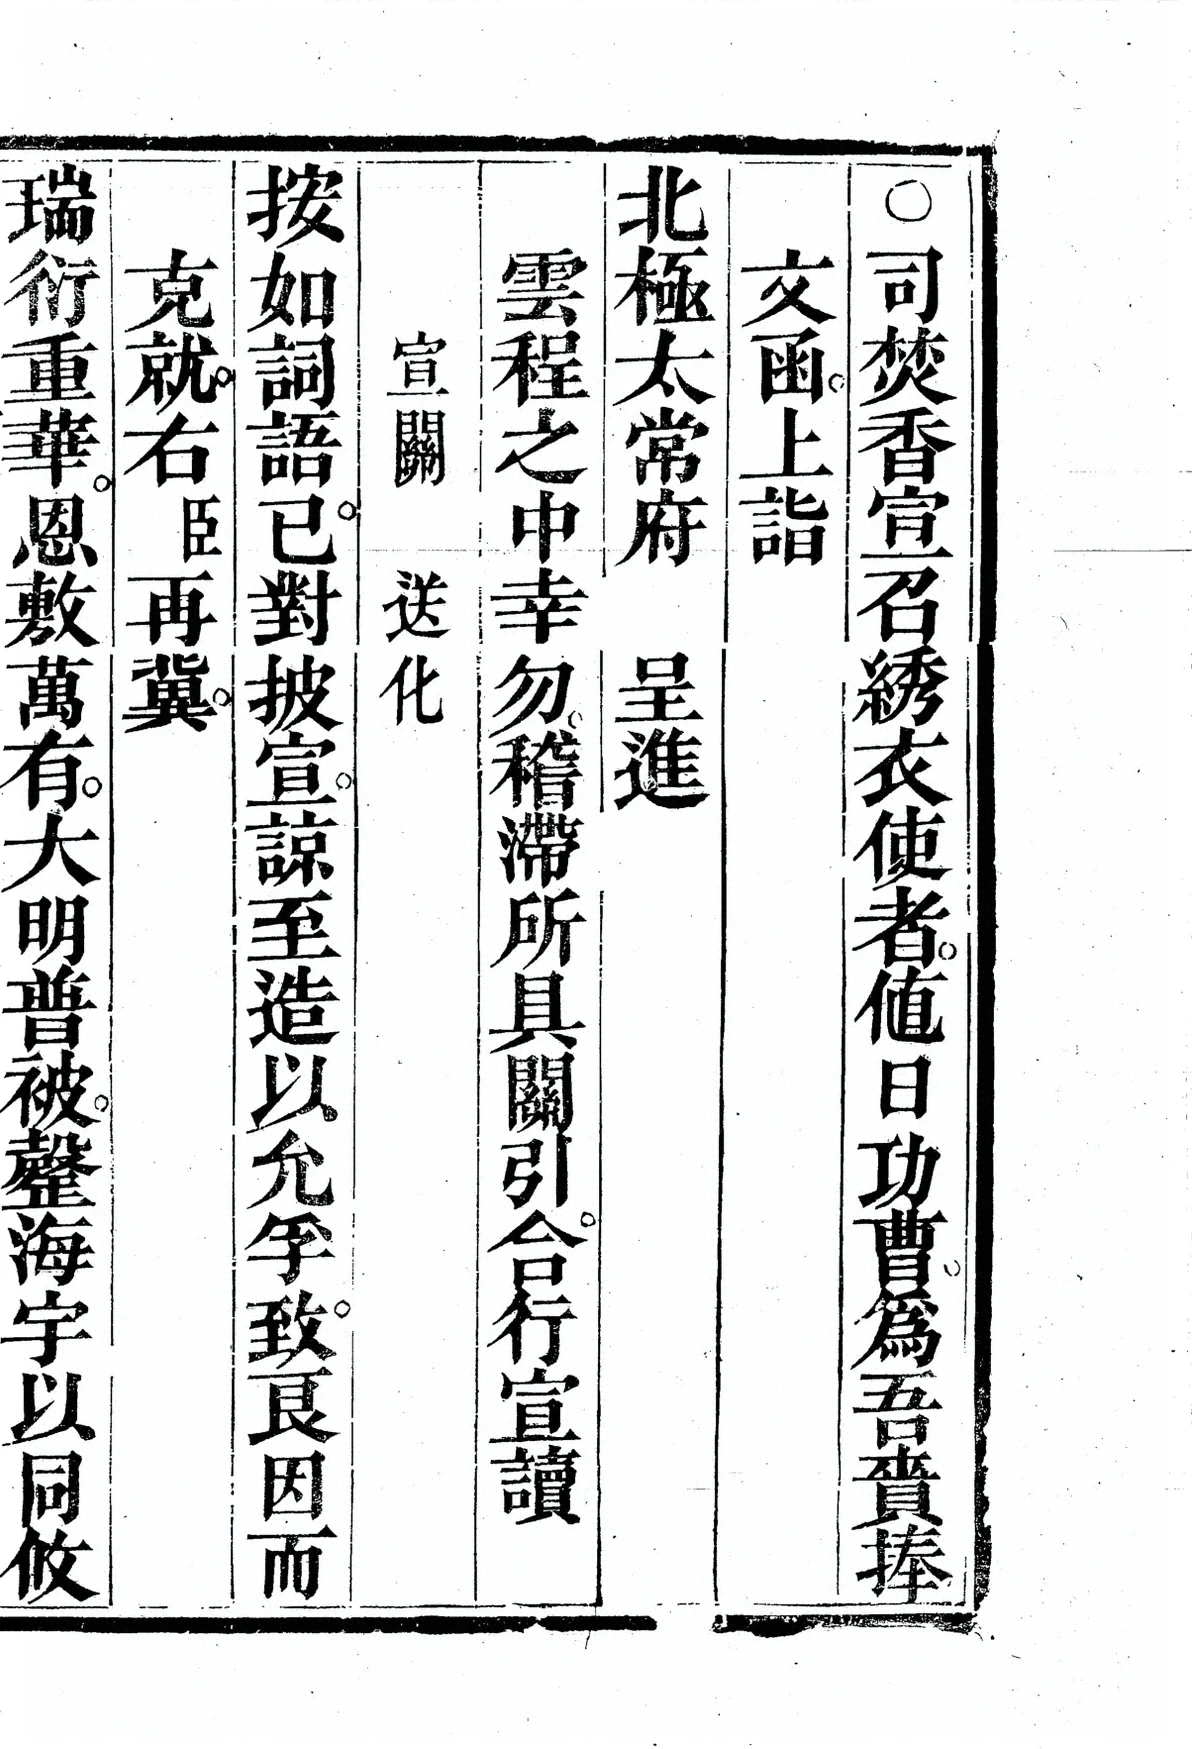 ○司焚香宣召綉衣使者。値日功曹。爲吾賫捧
文函。上詣
北極太常府　呈進
雲程之中幸勿。稽滯所具關引。合行宣讀
宣關　送化
按如詞語。已對披宣。諒至造以允孚。致良因而
克就。右臣再冀。
瑞衍重華。恩敷萬有。大明普被。罄海宇以同攸